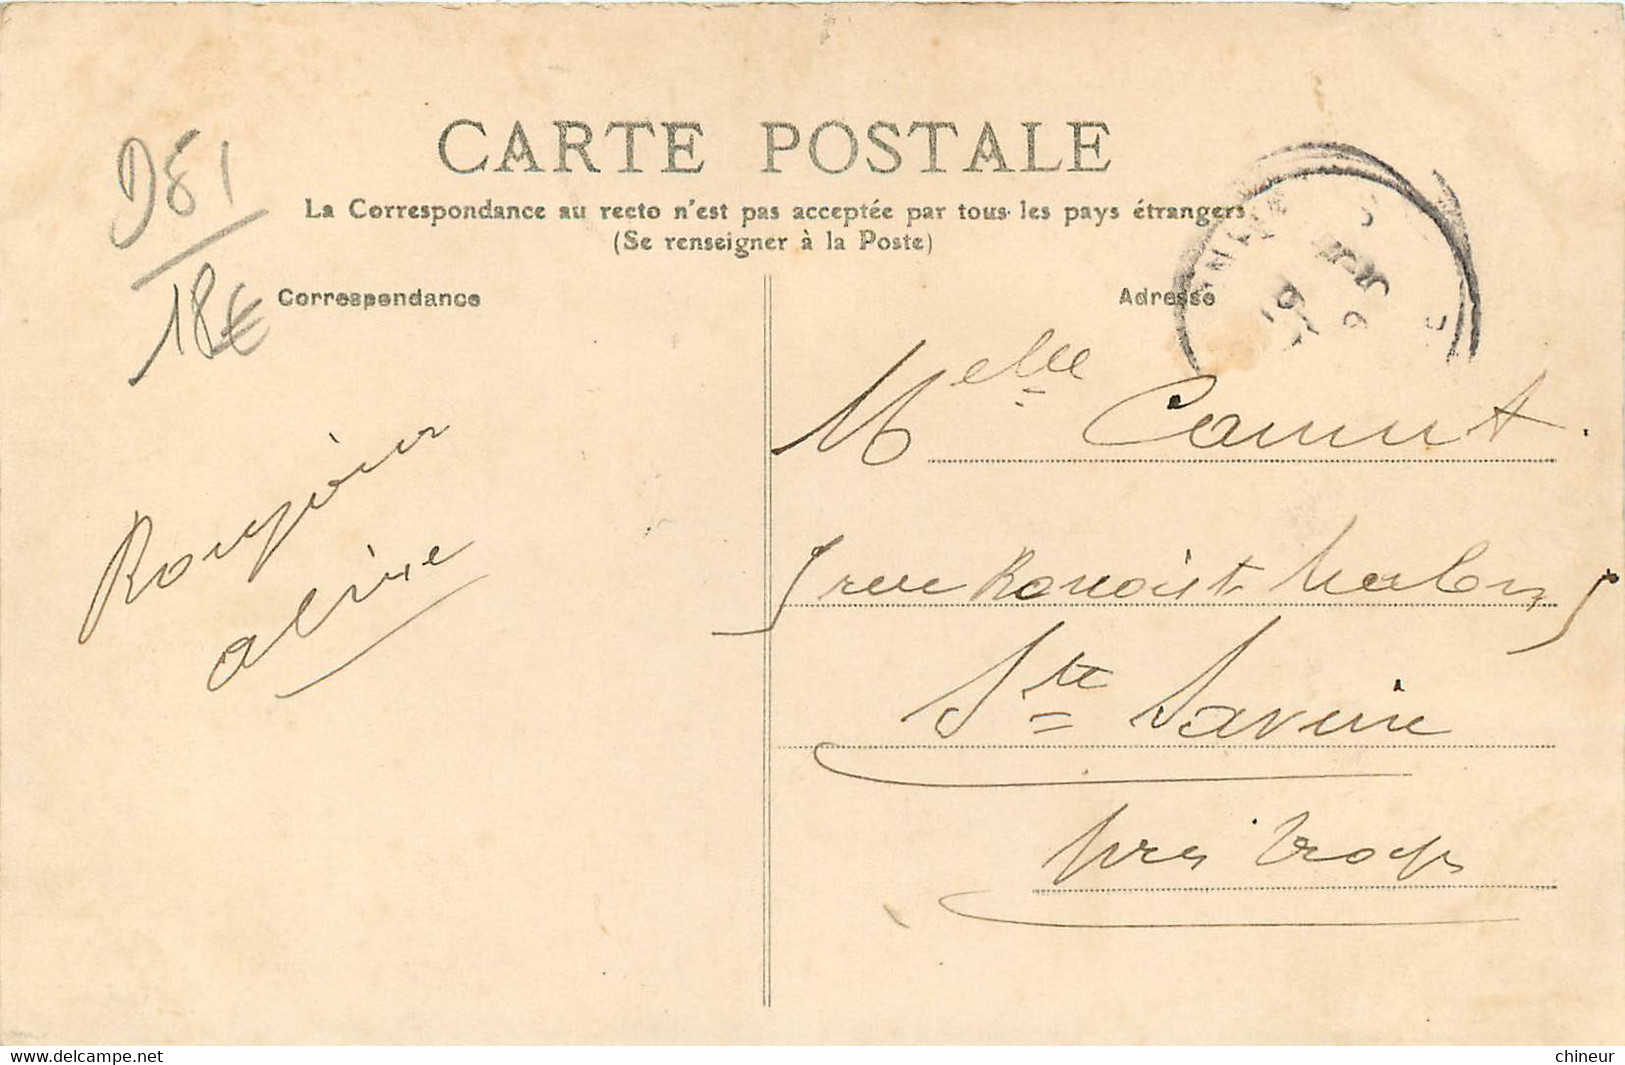 CARTE POSTALE
La Correspondance au recto n'est pas acceptée par tous les pays étrangers
(Se renseigner à la Poste)
D81
18€
Correspondance
Adresse
Melle Camut.
5 rue Benoist Malon 5
Ste Savine
près Troyes
aline
www.delcampe.net
chineur